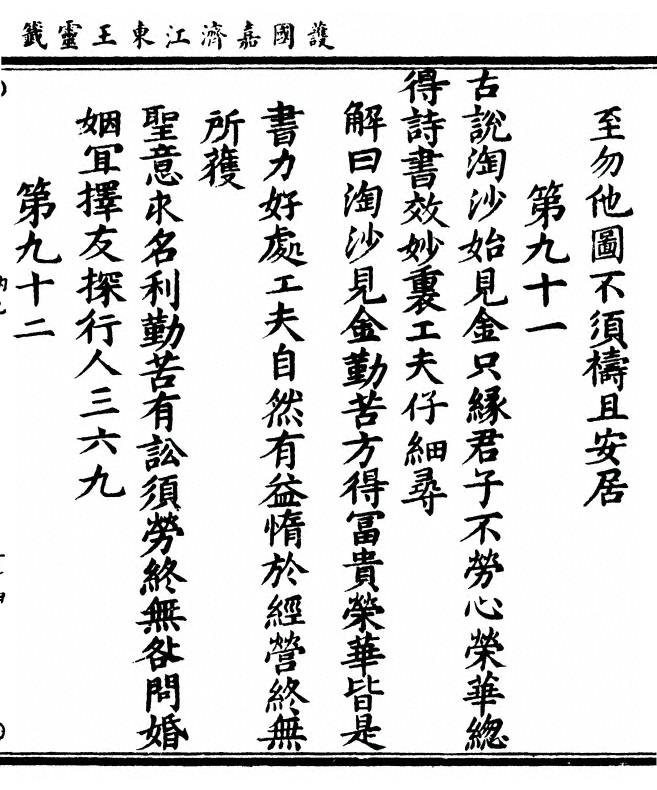 護國嘉濟江東王靈籤
至勿他圖不須禱且安居
第九十一
古說淘沙始見金只緣君子不勞心榮華總
得詩書效妙裏工夫仔細尋
解曰淘沙見金勤苦方得冨貴榮華皆是
書力好處工夫自然有益惰於經營終無
所獲
聖意求名利勤苦有訟須勞終無咎問婚
姻冝擇友探行人三六九
第九十二